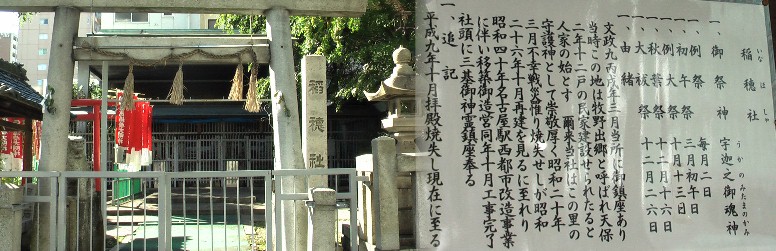 稲穂社
稲穂社
いなほしゃ
一、御祭神 宇迦之御魂神
うかのみたまのかみ
一、例祭 毎月二日
初午祭 三月初午
例大祭 十月十三日
秋葉祭 十二月十六日
大祓祭 十二月二六日
一、由緒
文政九丙戌年三月当所に御鎮座あり
当時この地は牧野出郷と呼ばれ天保
二年十二戸の民家建設せられたると
人家の始とす 爾来当社はこの里の
守護神として崇敬厚く昭和二十年
三月不幸戦災罹り焼失せしが昭和
二十六年十月再建を見るに至れり
昭和四十年名古屋駅西都市改造事業
に伴い移築御造営同年十月工事完了
社頭に三基御神霊鎮座奉る
一、追記
平成九年十月拝殿焼失し現在に至る